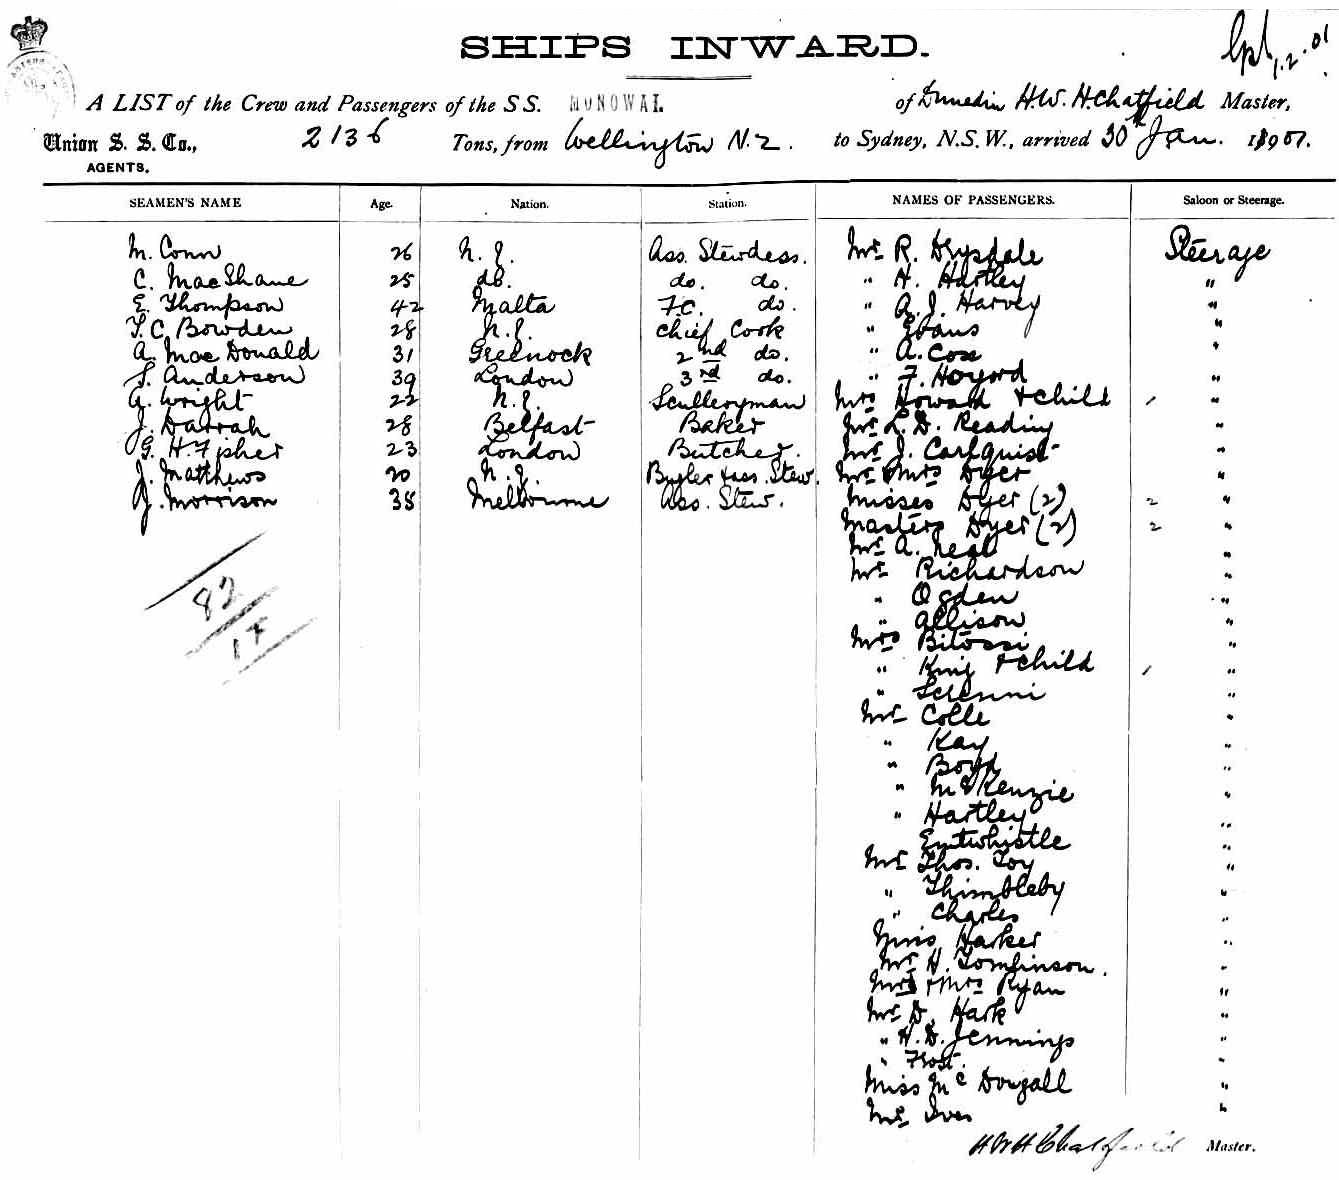 Cpl 1.2.01
SHIPS INWARD.
A LIST of the Crew and Passengers of the SS. MONOWAI. of Dunedin H.W.H. Chatfield Master,
Union S. S. Co., 2136 Tons, from Wellington N.Z. to Sydney, N.S.W., arrived 30th Jan. 1901.
AGENTS.
SEAMEN'S NAME Age. Nation. Station. NAMES OF PASSENGERS. Saloon or Steerage.
M. Conn 26 N.Z. Ass. Stewdess. Mr R. Drysdale Steerage
C. MacShane 25 do. do. do. " H. Hartley "
E. Thompson 42 Malta F.C. do. " A.J. Harvey "
T.C. Bowden 28 N.Z. Chief Cook " Evans "
A. MacDonald 31 Greenock 2nd do. " A. Cox "
S. Anderson 39 London 3rd do. " F. Hoyord "
G. Wright 22 N.Z. Sculleryman Mrs Howard & Child 1 "
J. Darrah 28 Belfast Baker Mr L.D. Reading "
G. H. Fisher 23 London Butcher. Mr J. Carlquist "
J. Matthews 20 N.Z. Bugler & ass. Stew. Mr & Mrs Dyer "
J. Morrison 38 Melbourne Ass. Stew. Misses Dyer (2) 2 "
Masters Dyer (2) 2 "
Mr A. Neal "
Mr Richardson "
" Ogden "
" Allison "
82
17
Mrs Bitossi "
" King & Child 1 "
" Serenni "
Mr Colle "
" Kay "
" Boyd "
" McKenzie "
" Hartley "
Entwhistle "
Mr Thos. Toy "
" Thimbleby "
" Charles "
Miss Harker "
Mr H. Tomlinson. "
Mr & Mrs Ryan "
Mr D. Hark "
" H.D. Jennings "
" Frost. "
Miss McDougall "
Mr Ives "
H W H Chatfield Master.